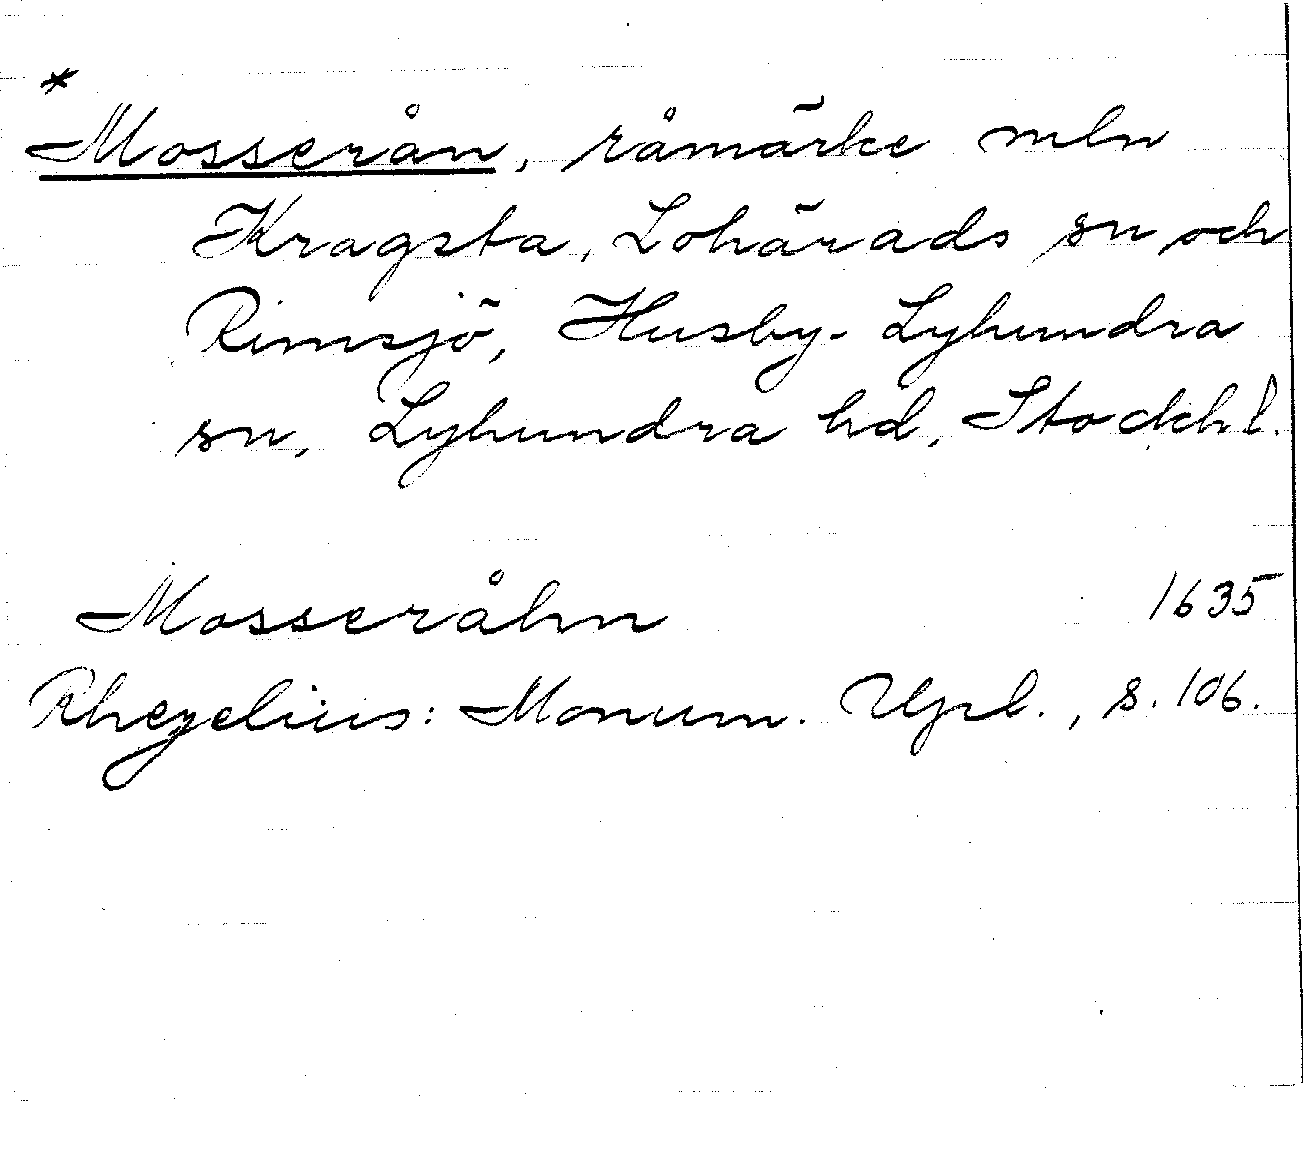 *
Mosserån, råmärke mln
Kragsta, Lohärads sn och
Rimsjö, Husby-Lyhundra
sn, Lyhundra hd, Stockh l.
Mosseråhn 1635
Rhezelius: Monum. Upl., s. 106.